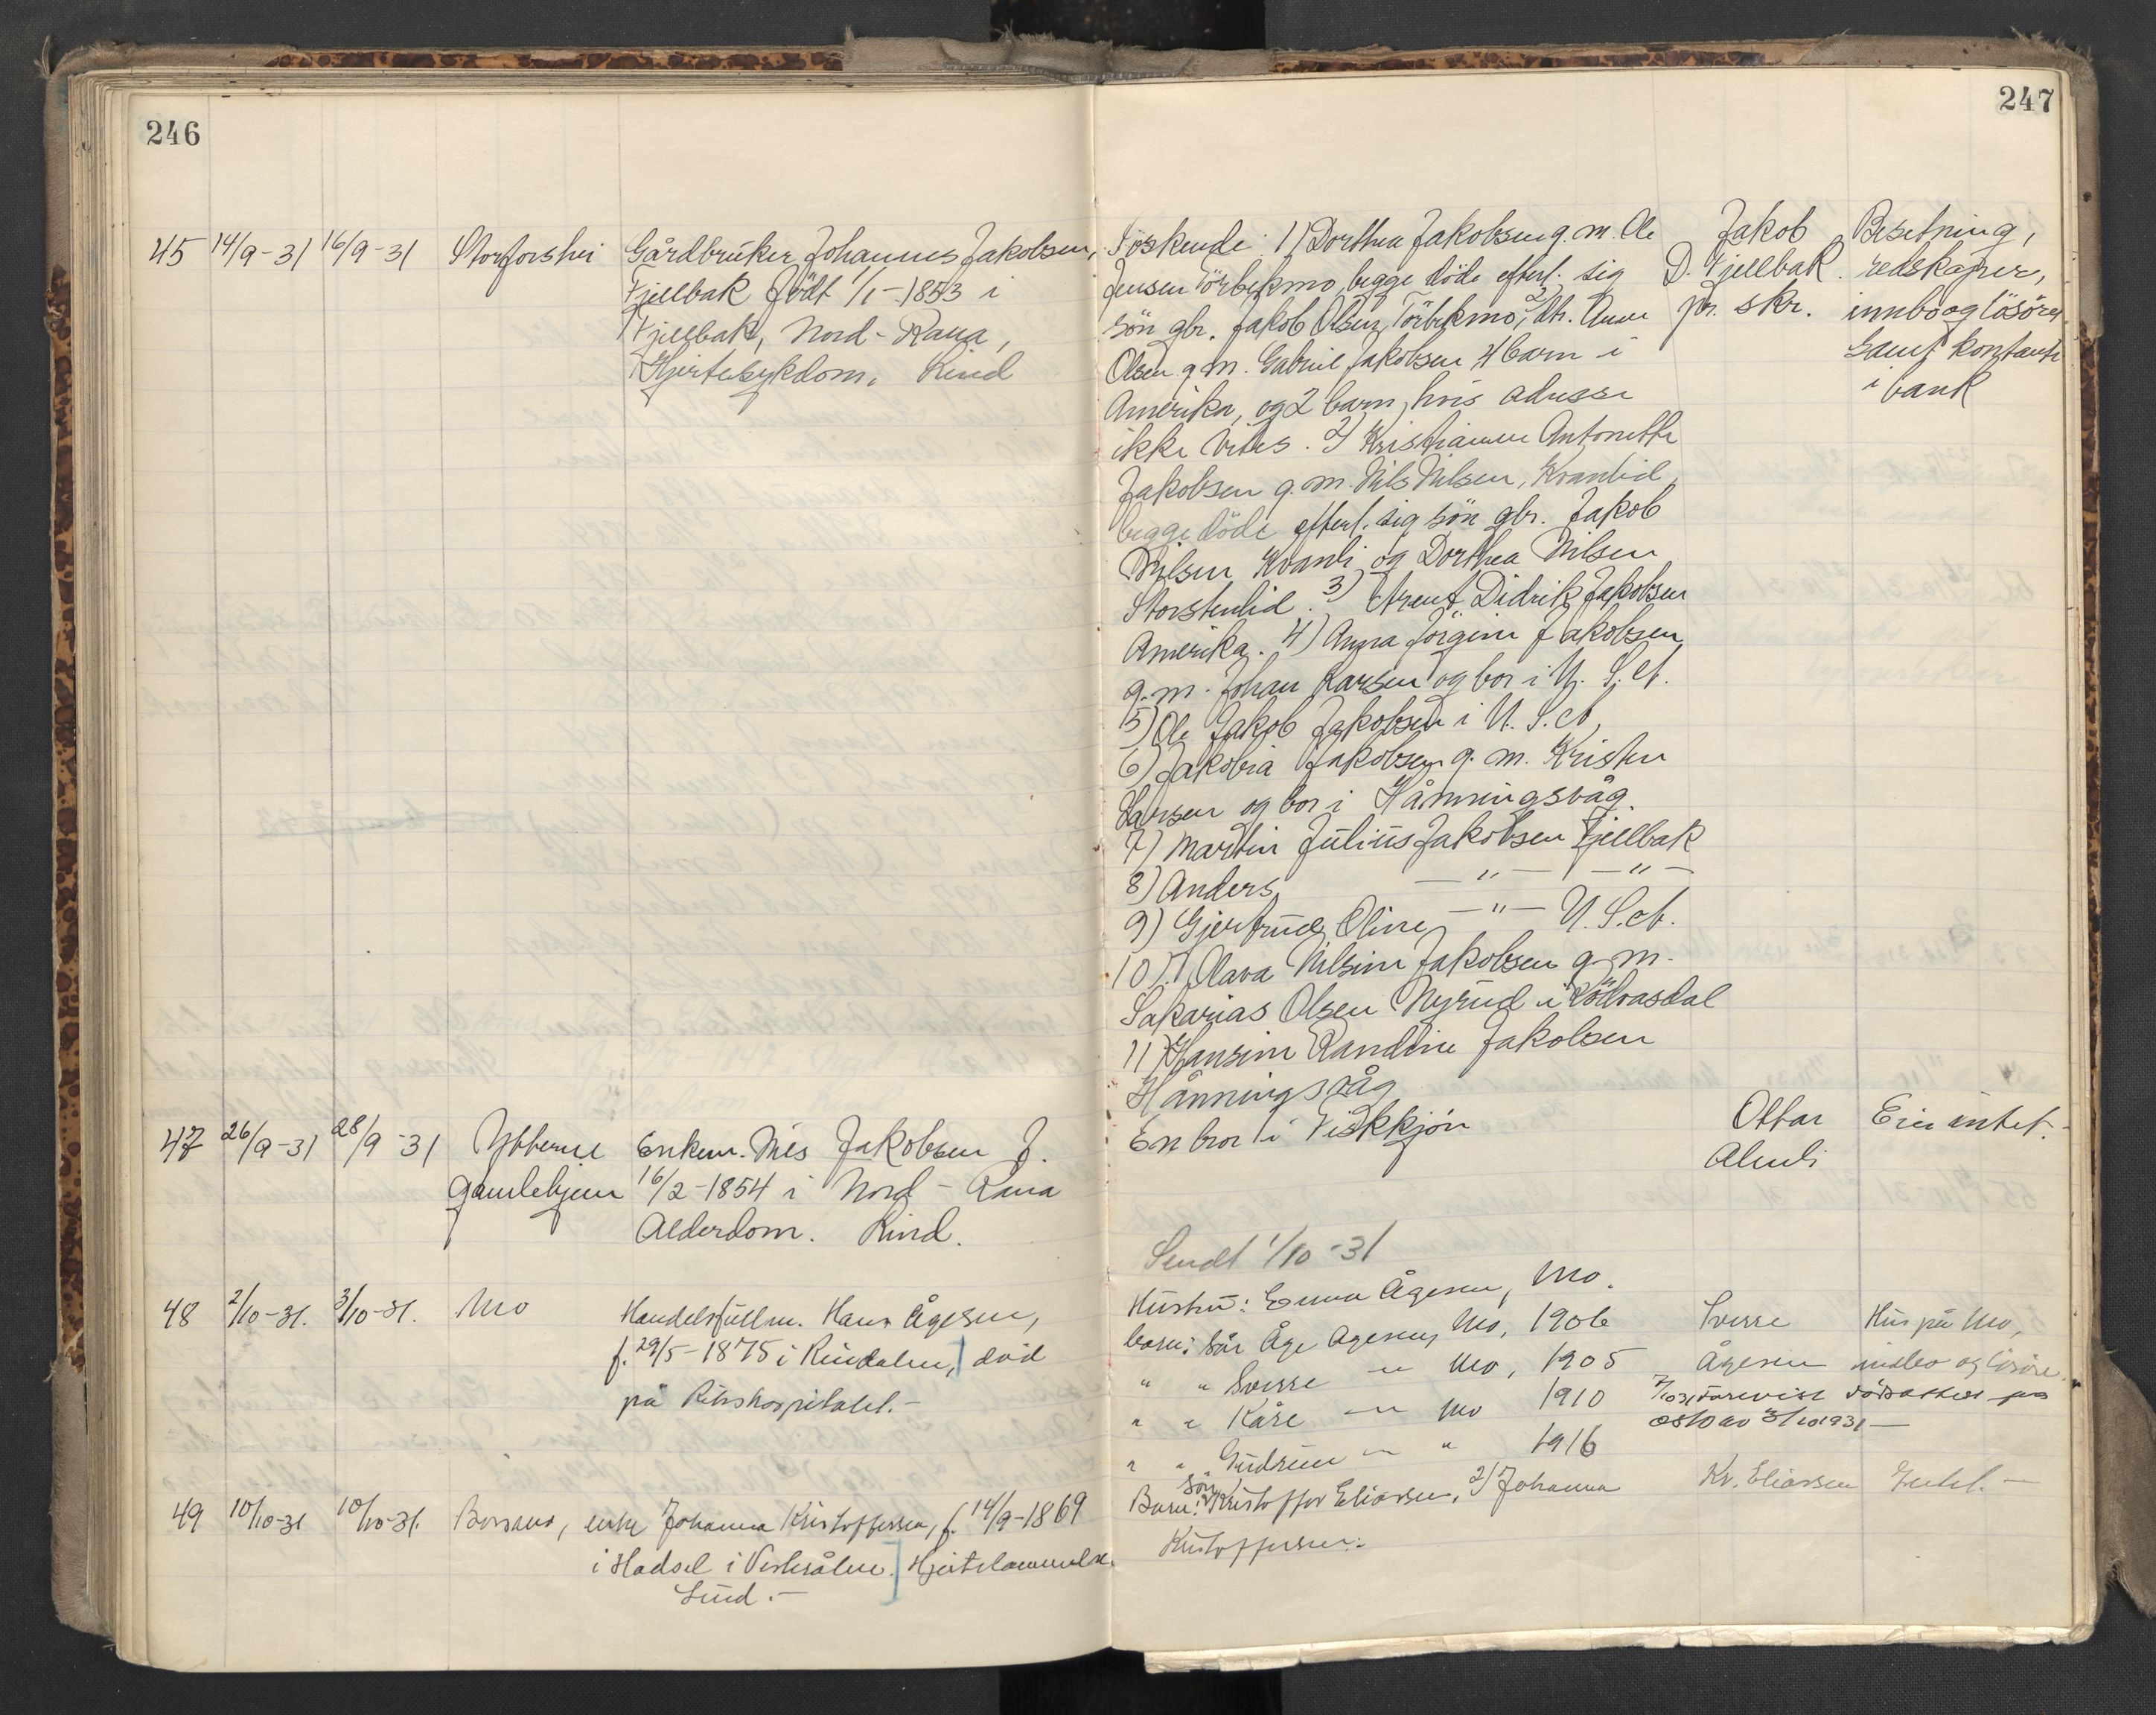 246
45 14/9-31 16/9-31 Storforshei Gårdbruker Johannes Jakobsen,
Fjellbak født 1/1-1853 i
Fjellbak, Nord-Rana,
Hjertesykdom. Lind
47 26/9-31 28/9-31 Ytteren Enkem. Nils Jakobsen f.
gamlehjem 16/2-1854 i Nord-Rana
Alderdom. Lind.
48 2/10-31. 3/10-31. Mo Handelsfullm. Hans Ågesen,
f. 29/5-1875 i Rindalen, død
på Rikshospitalet.-
49 10/10-31 10/10-31. enke Johanna Kristoffersen, f. 14/9-1869
i Hadsel i Vesterålen. Hjertelammelse.
Lind.-
247
Söskende: 1) Dorthea Jakobsen g.m. Ole
Jensen Törbekmo, begge döde efterl. sig
sön gbr. Jakob Olsen Törbekmo, 2) dtr. Anne
Olsen g.m. Gabriel Jakobsen 4 barn i
Amerika, og 2 barn, hvis adresse
ikke vites. 2) Kristianne Antonette
Jakobsen g.m. Nils Nilsen, Kvanlid,
begge döde efterl. sig sön gbr. Jakob
Nilsen Kvanli og Dorthea Nilsen
Storstenlid. 3) Arent Didrik Jakobsen
Amerika. 4) Anna Jörgine Jakobsen
g.m. Johan Larsen og bor i U.S.A.
5) Ole Jakob Jakobsen i U.S.A.
6) Jakobia Jakobsen g.m. Kristen
Larsen og bor i Hånningsvåg.
7) Martin Julius Jakobsen Fjellbak
8) Anders —"— —"—
9) Gjertrud Oline —"— U.S.A.
10) Olava Nilsine Jakobsen g.m.
Sakarias Olsen Nyrud i Rödvasdal
11) Hansine Randine Jakobsen
Hånningsvåg
Jakob
D. Fjellbak
pr. skr.
Besetning,
redskaper,
innbo og lösöre
samt kontanter
i bank
En bror i Fiskkjön
Ottar
Almli
Eier intet.-
Sendt 1/10-31
Hustru: Emma Ågesen, Mo.
barn: Sön Åge Ågesen, Mo, 1906
" " Sverre —"— Mo, 1905
" " Kåre —"— Mo 1910
" " Gudrun —"— " 1916
Sverre
Ågesen
Hus på Mo,
innbo og lösöre.
7/10 31 forevist dödsattest fra
Oslo av 3/10 1931—
Barn: sön 1) Kristoffer Eliassen, 2) Johanna
Kristoffersen.
Kr. Eliassen Intet.—